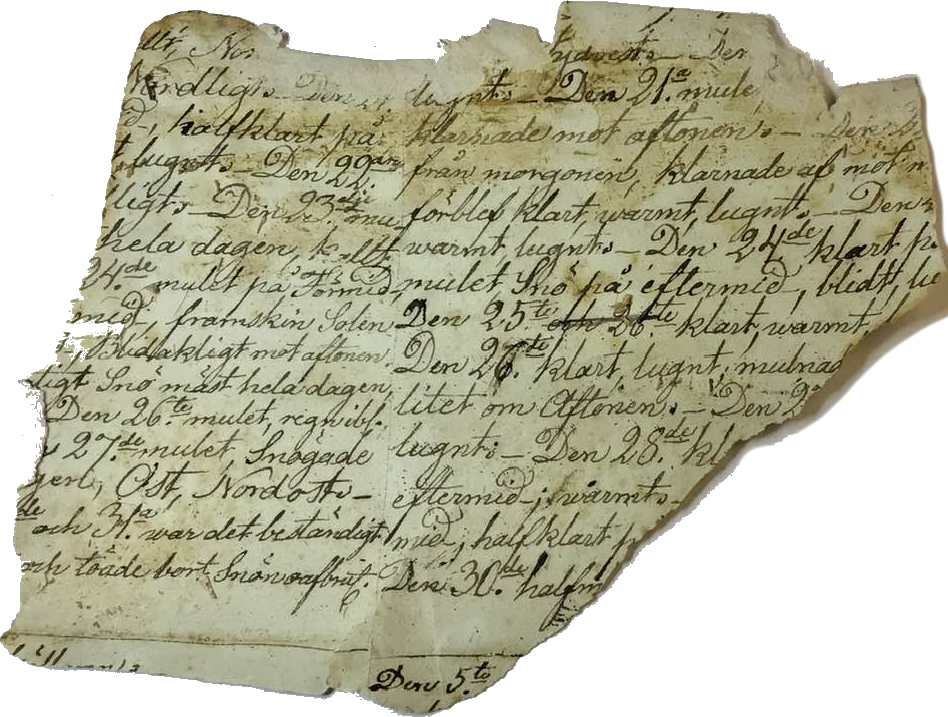 Nordligt. Den 21.
halfklart på
lugnt. — Den 22
ligt. — Den 23dje mu
hela dagen, kallt
24.de mulet på Förmid
mid, framskin Solen
Blidakligt mot aftonen.
ligt Snö mäst hela dagen,
Den 26.te mulet, regn ibl.
27.de mulet, Snögade
gen, Ost, Nordost. —
och 31.a war det beständigt
och töade bort Snön oafbrut.
ydvest. — Den
lugnt. — Den 21.a mule
klarnade mot aftonen. — Den
från morgonen, klarnade af mot m
förblef klart, warmt, lugnt. — Den
warmt, lugnt. — Den 24de klart p
mulet Snö på eftermid, blidt, lu
Den 25.te och 26.te klart, warmt.
Den 26.te klart, lugnt, mulnad
litet om Aftonen. — Den 2
lugnt. — Den 28.de kl
eftermid; warmt. —
mid, halfklart p
Den 30.de halfm
Den 5.te